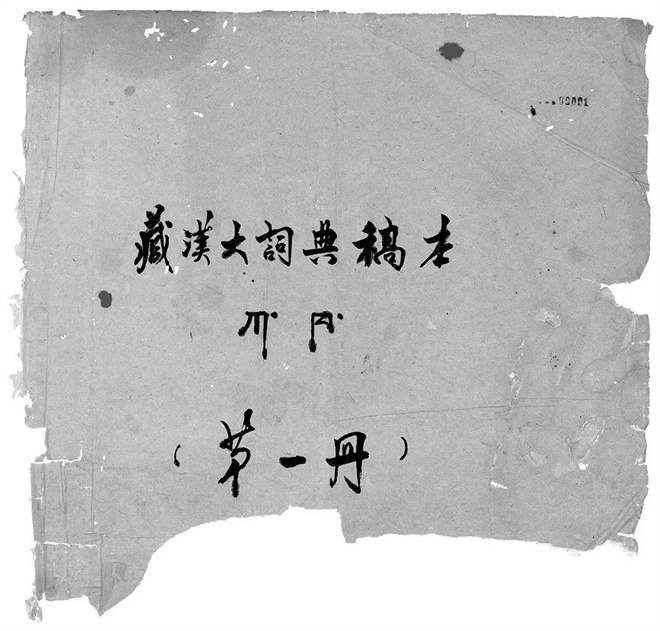 藏漢大詞典稿本
ཀ་ ཁ་
（第一册）